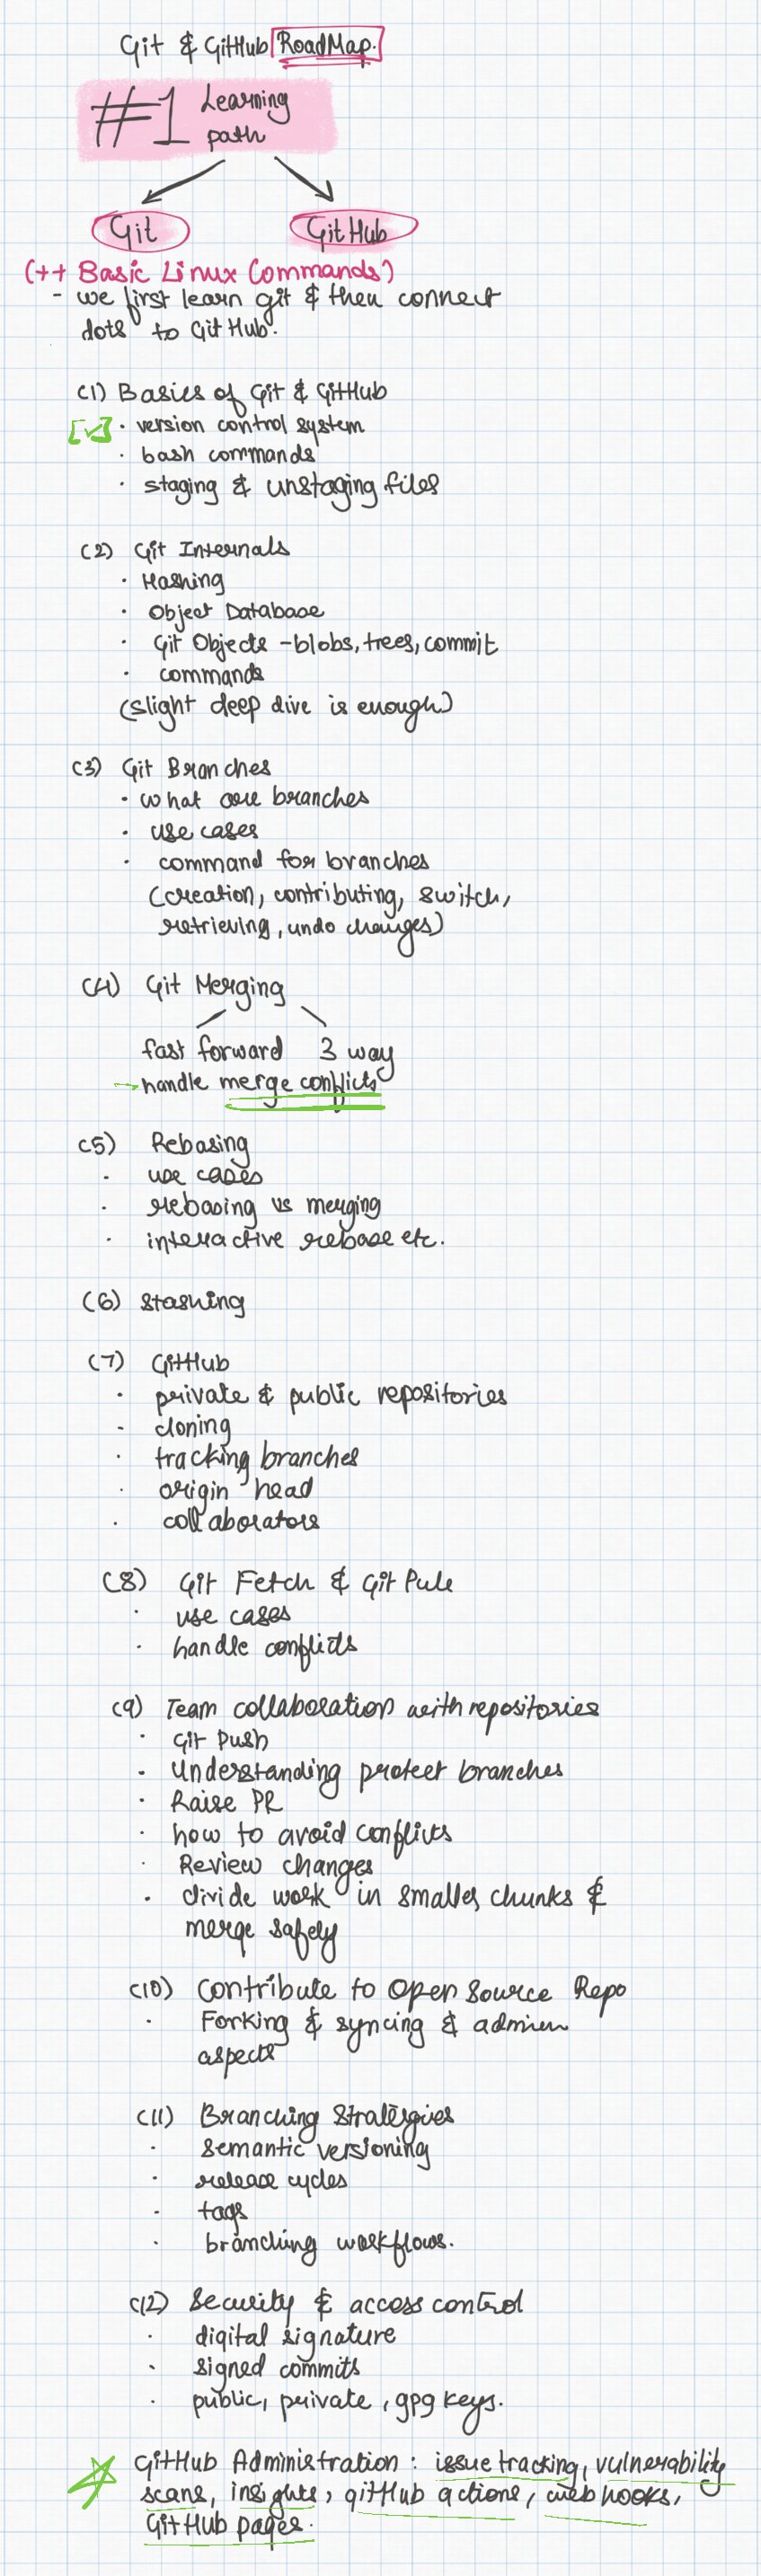 Git & GitHub RoadMap.
#1 Learning
path
Git GitHub
(++ Basic Linux Commands)
- we first learn git & then connect
dots to GitHub.
(1) Basics of Git & GitHub
· version control system
· bash commands
· staging & unstaging files
(2) Git Internals
· Hashing
· Object Database
· Git Objects - blobs, trees, commit
· commands
(slight deep dive is enough)
(3) Git Branches
· what are branches
· use cases
· command for branches
(creation, contributing, switch,
retrieving, undo changes)
(4) Git Merging
fast forward 3 way
→ handle merge conflicts
(5) Rebasing
· use cases
· rebasing vs merging
· interactive rebase etc.
(6) Stashing
(7) GitHub
· private & public repositories
· cloning
· tracking branches
· origin head
· collaborators
(8) Git Fetch & Git Pule
· use cases
· handle conflicts
(9) Team collaboration with repositories
· Git Push
· Understanding protect branches
· Raise PR
· how to avoid conflicts
· Review changes
· divide work in smalles chunks &
merge safely
(10) Contribute to Open Source Repo
· Forking & syncing & admin
aspects
(11) Branching Stratergies
· semantic versioning
· release cycles
· tags
· branching workflows.
(12) Security & access control
· digital signature
· signed commits
· public, private, gpg keys.
GitHub Administration : issue tracking, vulnerability
scans, insights, gitHub actions, web hooks,
GitHub pages.